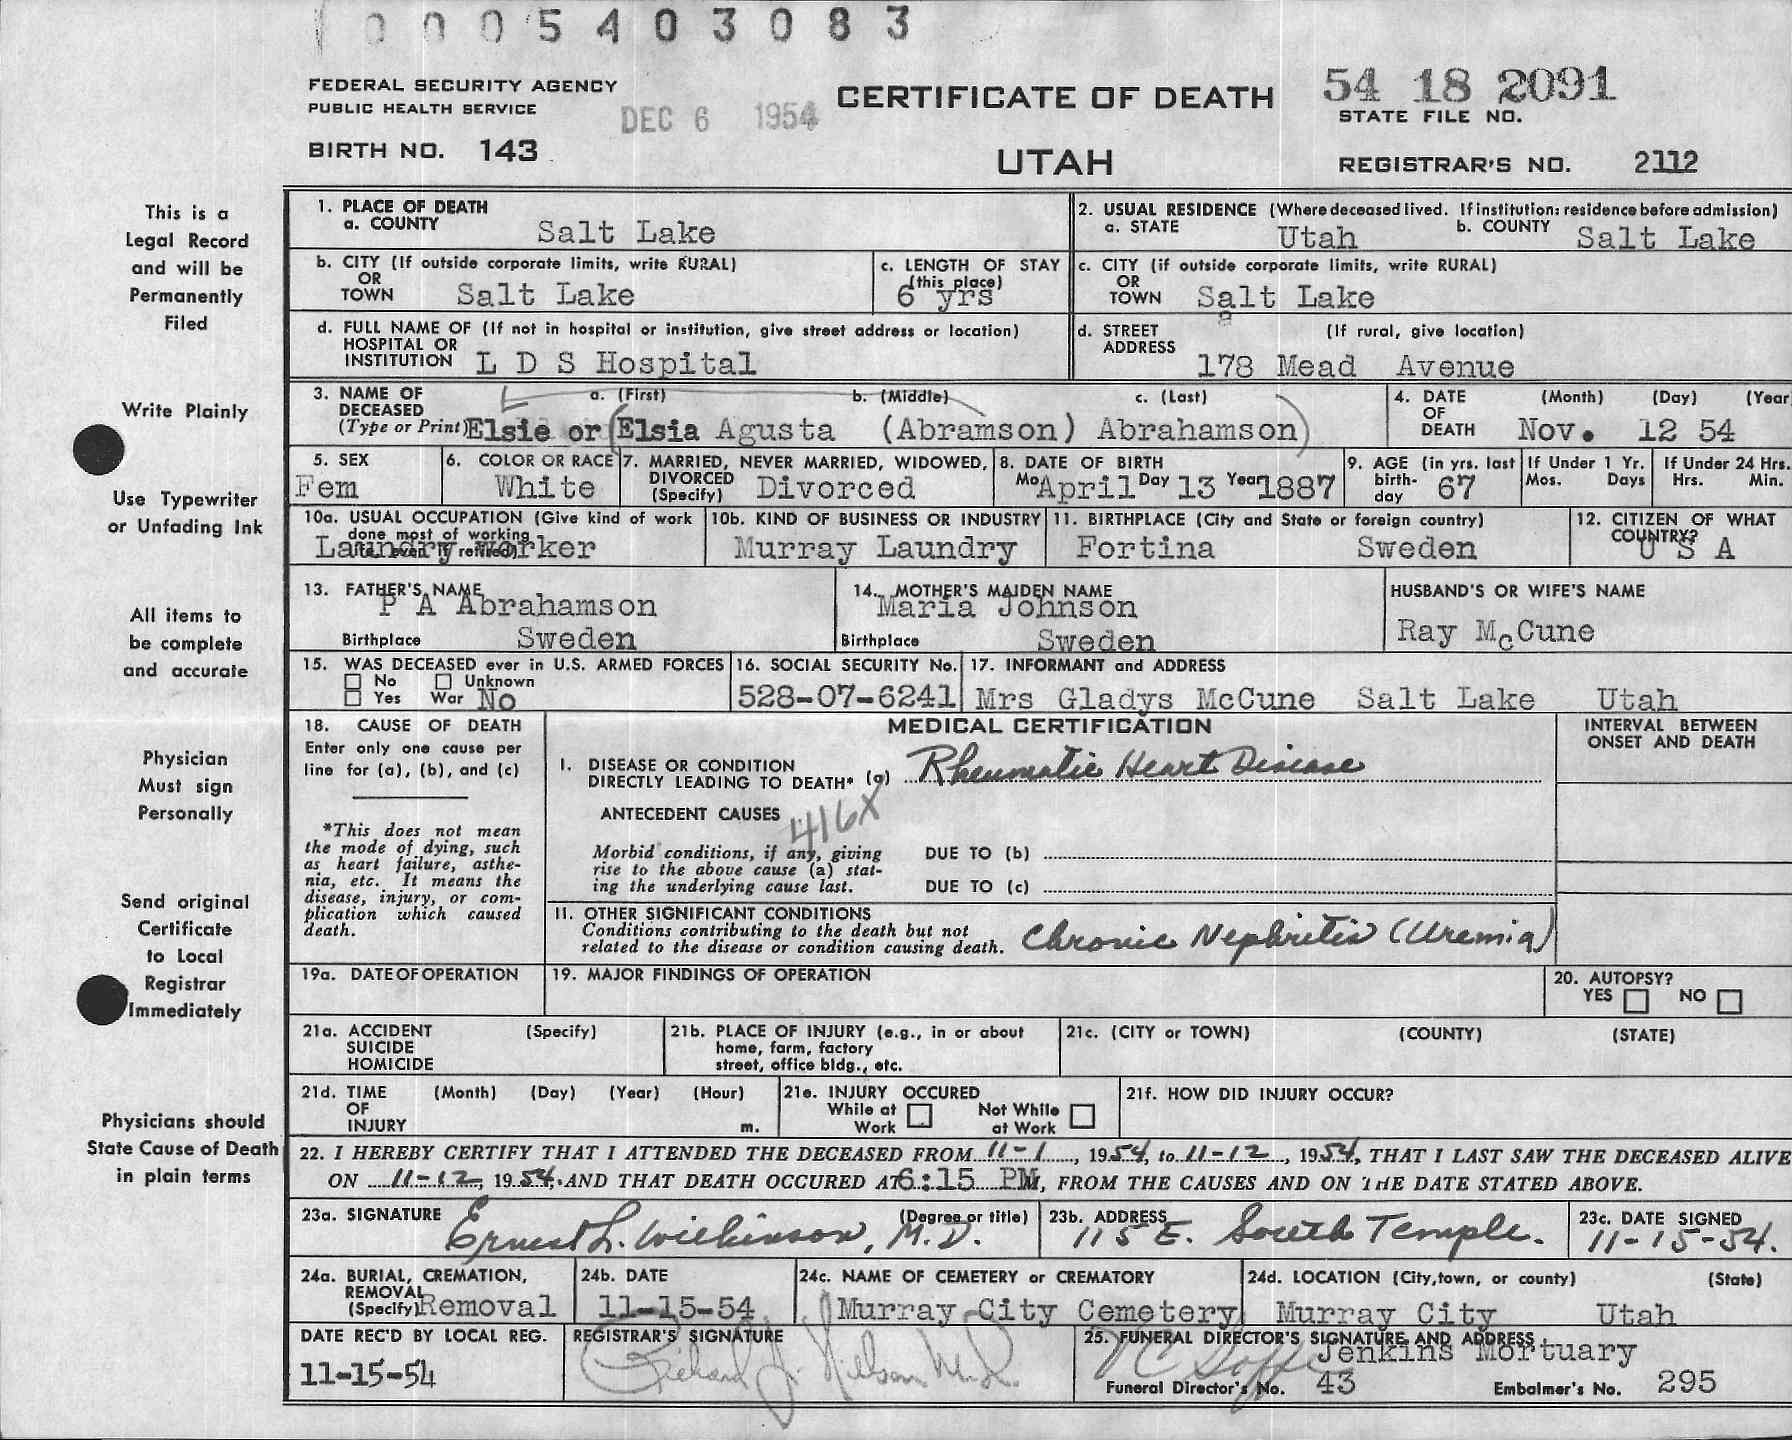 0005403083
FEDERAL SECURITY AGENCY
PUBLIC HEALTH SERVICE
DEC 6 1954
CERTIFICATE OF DEATH
54 18 2091
STATE FILE NO.
BIRTH NO. 143
UTAH
REGISTRAR'S NO. 2112
This is a
Legal Record
and will be
Permanently
Filed
Write Plainly
Use Typewriter
or Unfading Ink
All items to
be complete
and accurate
Physician
Must sign
Personally
Send original
Certificate
to Local
Registrar
Immediately
Physicians should
State Cause of Death
in plain terms
1. PLACE OF DEATH
a. COUNTY Salt Lake
2. USUAL RESIDENCE (Where deceased lived. If institution: residence before admission)
a. STATE Utah b. COUNTY Salt Lake
b. CITY (If outside corporate limits, write RURAL)
OR
TOWN Salt Lake
c. LENGTH OF STAY
(this place)
6 yrs
c. CITY (if outside corporate limits, write RURAL)
OR
TOWN Salt Lake
d. FULL NAME OF (If not in hospital or institution, give street address or location)
HOSPITAL OR
INSTITUTION L D S Hospital
d. STREET (If rural, give location)
ADDRESS
178 Mead Avenue
3. NAME OF a. (First) b. (Middle) c. (Last)
DECEASED
(Type or Print) Elsie or (Elsia Agusta (Abramson) Abrahamson)
4. DATE (Month) (Day) (Year
OF
DEATH Nov. 12 54
5. SEX
Fem
6. COLOR OR RACE
White
7. MARRIED, NEVER MARRIED, WIDOWED,
DIVORCED
(Specify) Divorced
8. DATE OF BIRTH
Mo April Day 13 Year 1887
9. AGE (in yrs. last
birth-
day 67
If Under 1 Yr.
Mos. Days
If Under 24 Hrs.
Hrs. Min.
10a. USUAL OCCUPATION (Give kind of work
done most of working
life, even if retired)
Laundry worker
10b. KIND OF BUSINESS OR INDUSTRY
Murray Laundry
11. BIRTHPLACE (City and State or foreign country)
Fortina Sweden
12. CITIZEN OF WHAT
COUNTRY?
U S A
13. FATHER'S NAME
P A Abrahamson
Birthplace Sweden
14. MOTHER'S MAIDEN NAME
Maria Johnson
Birthplace Sweden
HUSBAND'S OR WIFE'S NAME
Ray McCune
15. WAS DECEASED ever in U.S. ARMED FORCES
No Unknown
Yes War No
16. SOCIAL SECURITY No.
528-07-6241
17. INFORMANT and ADDRESS
Mrs Gladys McCune Salt Lake Utah
18. CAUSE OF DEATH
Enter only one cause per
line for (a), (b), and (c)
*This does not mean
the mode of dying, such
as heart failure, asthe-
nia, etc. It means the
disease, injury, or com-
plication which caused
death.
MEDICAL CERTIFICATION
INTERVAL BETWEEN
ONSET AND DEATH
I. DISEASE OR CONDITION
DIRECTLY LEADING TO DEATH* (a) Rheumatic Heart Disease
ANTECEDENT CAUSES
416X
Morbid conditions, if any, giving
rise to the above cause (a) stat-
ing the underlying cause last.
DUE TO (b)
DUE TO (c)
II. OTHER SIGNIFICANT CONDITIONS
Conditions contributing to the death but not
related to the disease or condition causing death.
Chronic Nephritis (Uremia)
19a. DATE OF OPERATION
19. MAJOR FINDINGS OF OPERATION
20. AUTOPSY?
YES NO
21a. ACCIDENT (Specify)
SUICIDE
HOMICIDE
21b. PLACE OF INJURY (e.g., in or about
home, farm, factory
street, office bldg., etc.
21c. (CITY or TOWN) (COUNTY) (STATE)
21d. TIME (Month) (Day) (Year) (Hour)
OF
INJURY m.
21e. INJURY OCCURED
While at Work
Not While at Work
21f. HOW DID INJURY OCCUR?
22. I HEREBY CERTIFY THAT I ATTENDED THE DECEASED FROM 11-1, 1954, to 11-12, 1954, THAT I LAST SAW THE DECEASED ALIVE
ON 11-12, 1954, AND THAT DEATH OCCURED AT 6:15 PM, FROM THE CAUSES AND ON THE DATE STATED ABOVE.
23a. SIGNATURE (Degree or title)
Ernest L. Wilkinson, M.D.
23b. ADDRESS
115 E. South Temple.
23c. DATE SIGNED
11-15-54.
24a. BURIAL, CREMATION,
REMOVAL
(Specify) Removal
24b. DATE
11-15-54
24c. NAME OF CEMETERY or CREMATORY
Murray City Cemetery
24d. LOCATION (City, town, or county) (State)
Murray City Utah
DATE REC'D BY LOCAL REG.
11-15-54
REGISTRAR'S SIGNATURE
Richard J. Nelson M.D.
25. FUNERAL DIRECTOR'S SIGNATURE AND ADDRESS
Jenkins Mortuary
Funeral Director's No. 43 Embalmer's No. 295